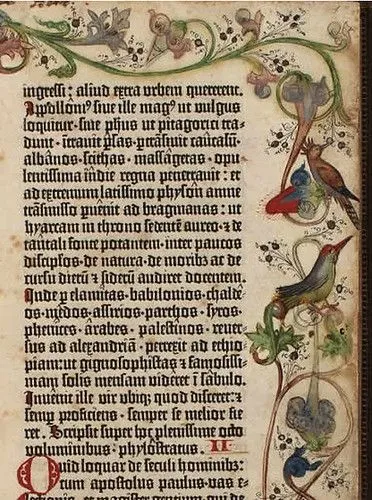 ingressi : aliud extra urbem quererent.
Apollonius sive ille mag9 ut vulgus
loquitur · sive ph̄us ut pitagorici tra-
dunt · ītravit p̄sas · p̄trāsivit caucasū·
albanos · scithas · massagetas · opu-
lentissima īndie regna penetravit : et
ad extremum latissimo physon amne
trāsmisso p̄venit ad bragmanas : ut
hyarcam in throno sedentē aureo · et de
tantali fonte potantem · inter paucos
discip̄los · de natura · de moribꝫ ac de
cursu dierū et siderū audiret docentem.
Inde p̄ elamitas · babilonios · chalde-
os · medos · assirios · parthos · syros ·
phenices · arabes · palestinos · rever-
sus ad alexandriā : perrexit ad ethio-
piam : ut gignosophistas et famosissi-
mam solis mensam videret ī sabulo.
Invenit ille vir ubiqꝫ quod disceret : et
semp̄ proficiens · semper se melior fie-
ret. Scripsit super hoc plenissime octo
voluminibus · phylostratus. II
Quid loquar de seculi hominibꝫ :
cum apostolus paulus · vas e-
lectionis · et magister gentium qui de